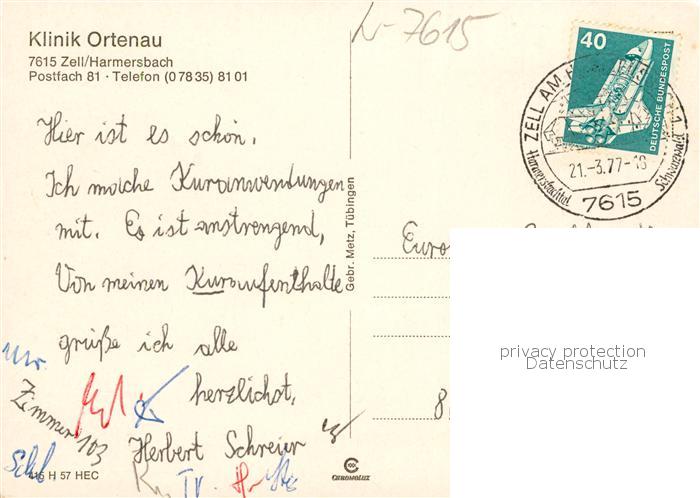 Klinik Ortenau
7615 Zell/Harmersbach
Postfach 81 · Telefon (0 78 35) 81 01
Hier ist es schön.
Ich mache Kuranwendungen
mit. Es ist anstrengend,
Von meinen Kuraufenthalte
grüße ich alle
herzlichst,
Herbert Schreier
Zimmer 103
416 H 57 HEC
Gebr. Metz, Tübingen
CHROMOLUX
7615
40
DEUTSCHE BUNDESPOST
ZELL AM H
21.-3.77-18
Harmersbachtal
Schwarzwald
7615
privacy protection
Datenschutz
8